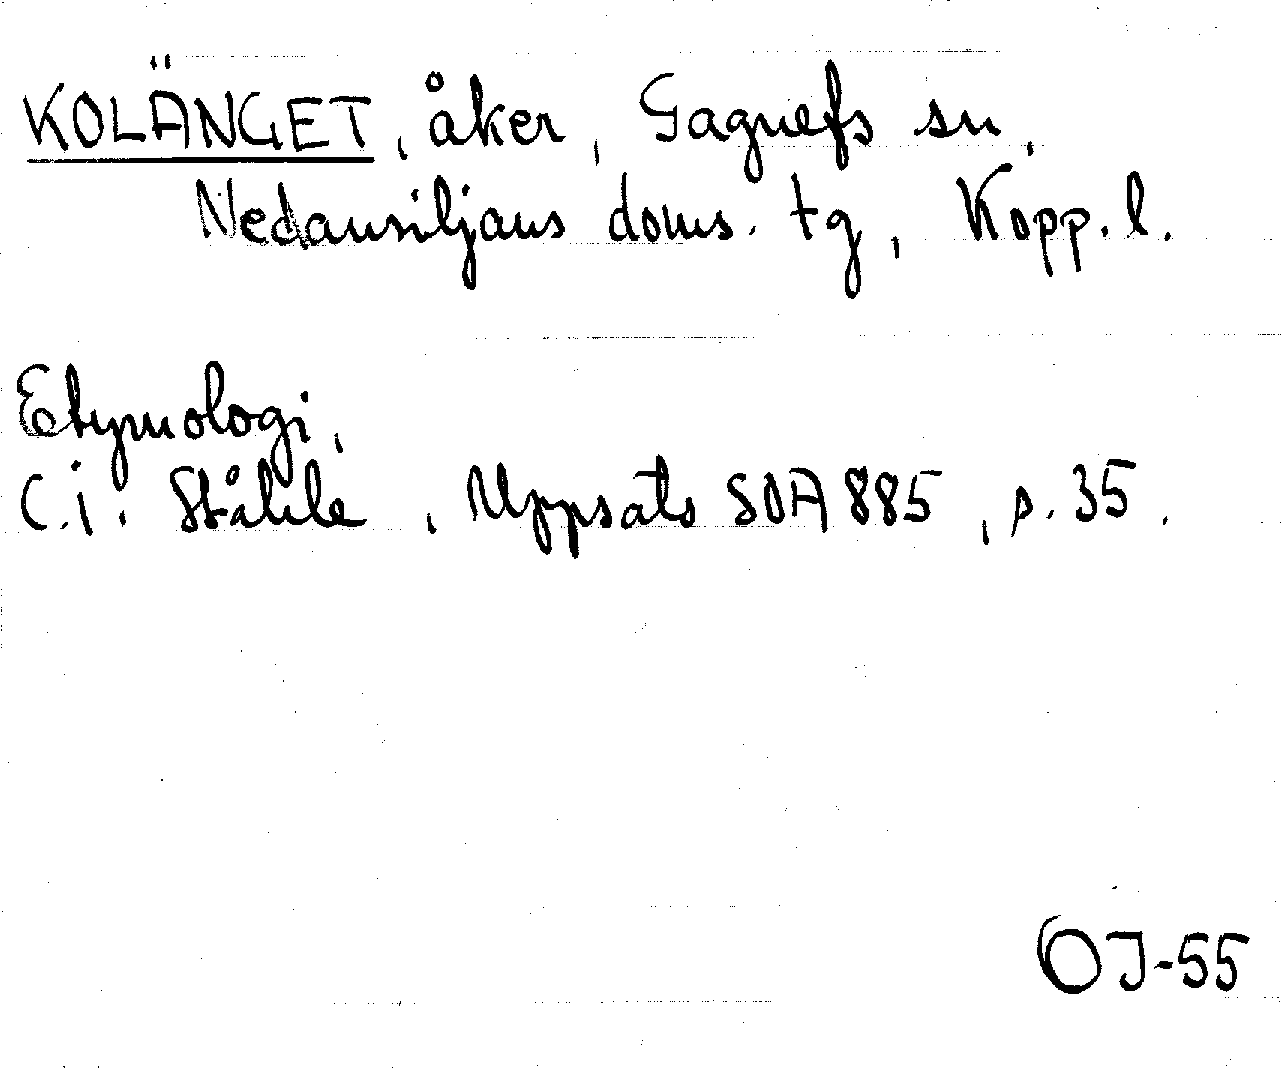 KOLÄNGET, åker, Gagnefs sn,
Nedansiljans doms. tg, Kopp. l.
Etymologi,
C.I. Ståhle, Uppsats SOA 885, s. 35.
OJ-55